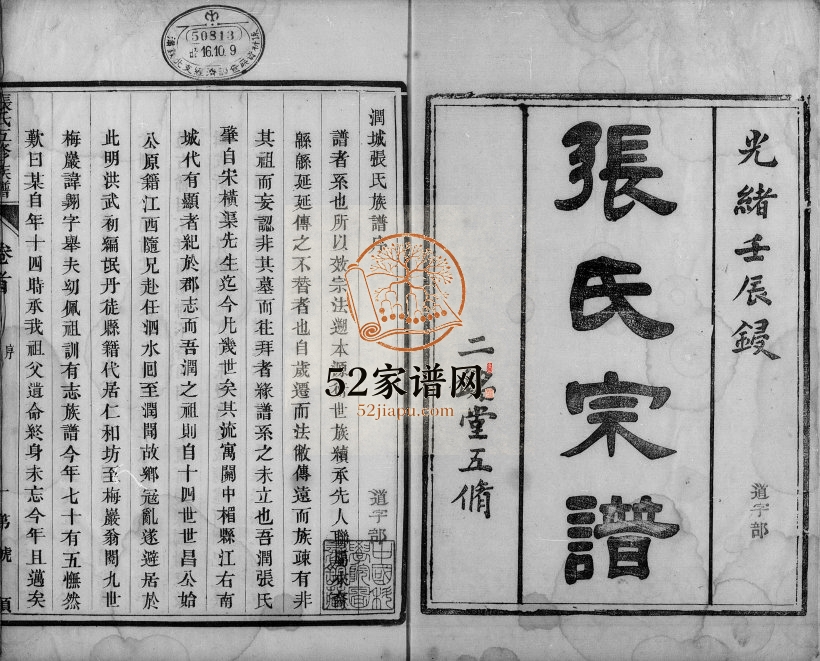 光緒壬辰鋟
張氏宗譜
二 堂五脩
道字部
潤城張氏族譜
譜者系也所以效宗法遡本源 世族積承先人聯屬
緜緜延延傳之不替者也自歲遷而法徹傳遠而族疎有非
其祖而妄認非其墓而往拜者緣譜系之未立也吾潤張氏
肇自宋橫渠先生迄今凡幾世矣其流寓關中楒縣江右南
城代有顯者紀於郡志而吾潤之祖則自十四世世昌公始
公原籍江西隨兄赴任泗水回至潤聞故鄉寇亂遂避居於
此明洪武初編氓丹徒縣籍代居仁和坊至梅巖翁閱九世
梅巖諱翺字舉夫幼佩祖訓有志族譜今年七十有五憮然
歎曰某自年十四時承我祖父遺命終身未忘今年且邁矣
道字部
張氏五修族譜
卷首
序
一
第 號
頁
50813
16.10.9
52家谱网
52jiapu.com